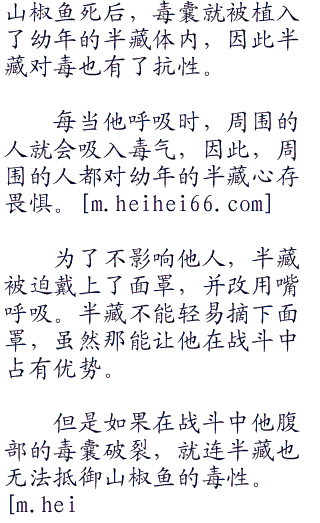 山椒鱼死后，毒囊就被植入
了幼年的半藏体内，因此半
藏对毒也有了抗性。
每当他呼吸时，周围的
人就会吸入毒气，因此，周
围的人都对幼年的半藏心存
畏惧。[m.heihei66.com]
为了不影响他人，半藏
被迫戴上了面罩，并改用嘴
呼吸。半藏不能轻易摘下面
罩，虽然那能让他在战斗中
占有优势。
但是如果在战斗中他腹
部的毒囊破裂，就连半藏也
无法抵御山椒鱼的毒性。
[m.hei